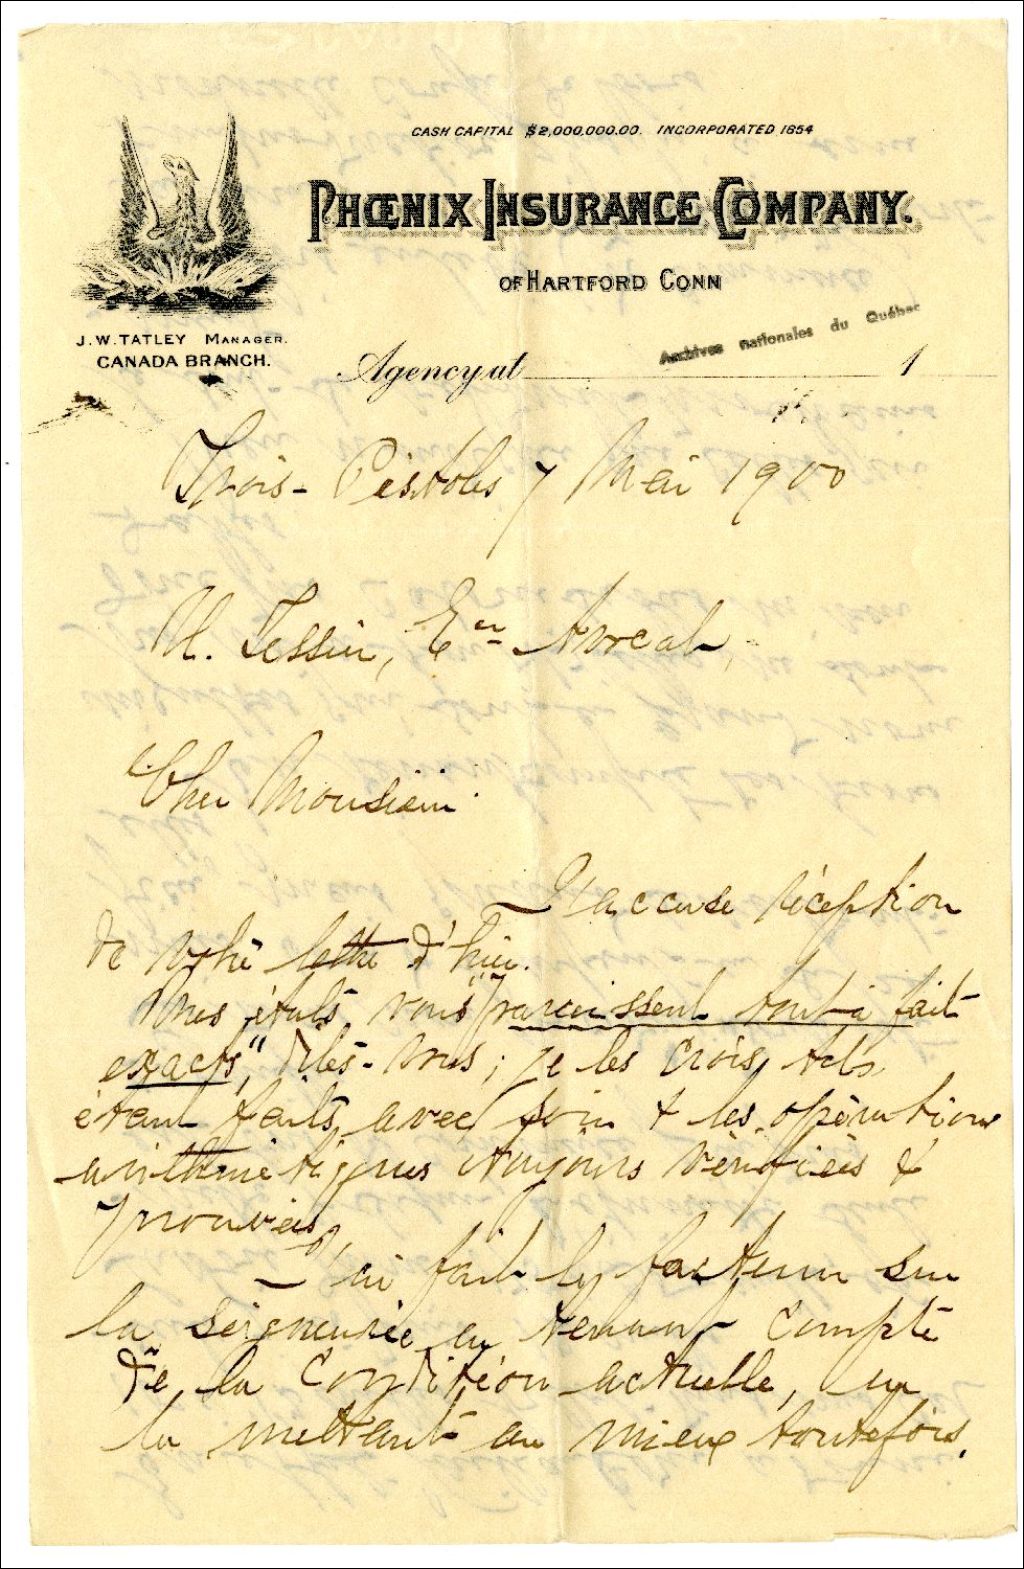 CASH CAPITAL $2,000,000.00. INCORPORATED 1854
PHŒNIX INSURANCE COMPANY.
OF HARTFORD CONN
J.W. TATLEY MANAGER.
CANADA BRANCH.
Archives nationales du Québec
Agency at 1
Trois-Pistoles 7 Mai 1900
M. Tessier, Ecr Avocat,
Cher Monsieur
J'accuse réception
de votre lettre d'hier.
Mes états vous "paraissent tout à fait
exacts", dites-vous; je les crois tels
étant faits avec soin & les opérations
arithmétiques toujours vérifiées &
prouvées.
J'ai fait les factum sur
la seigneurie en tenant compte
de la condition actuelle, en
la mettant au mieux toutefois.